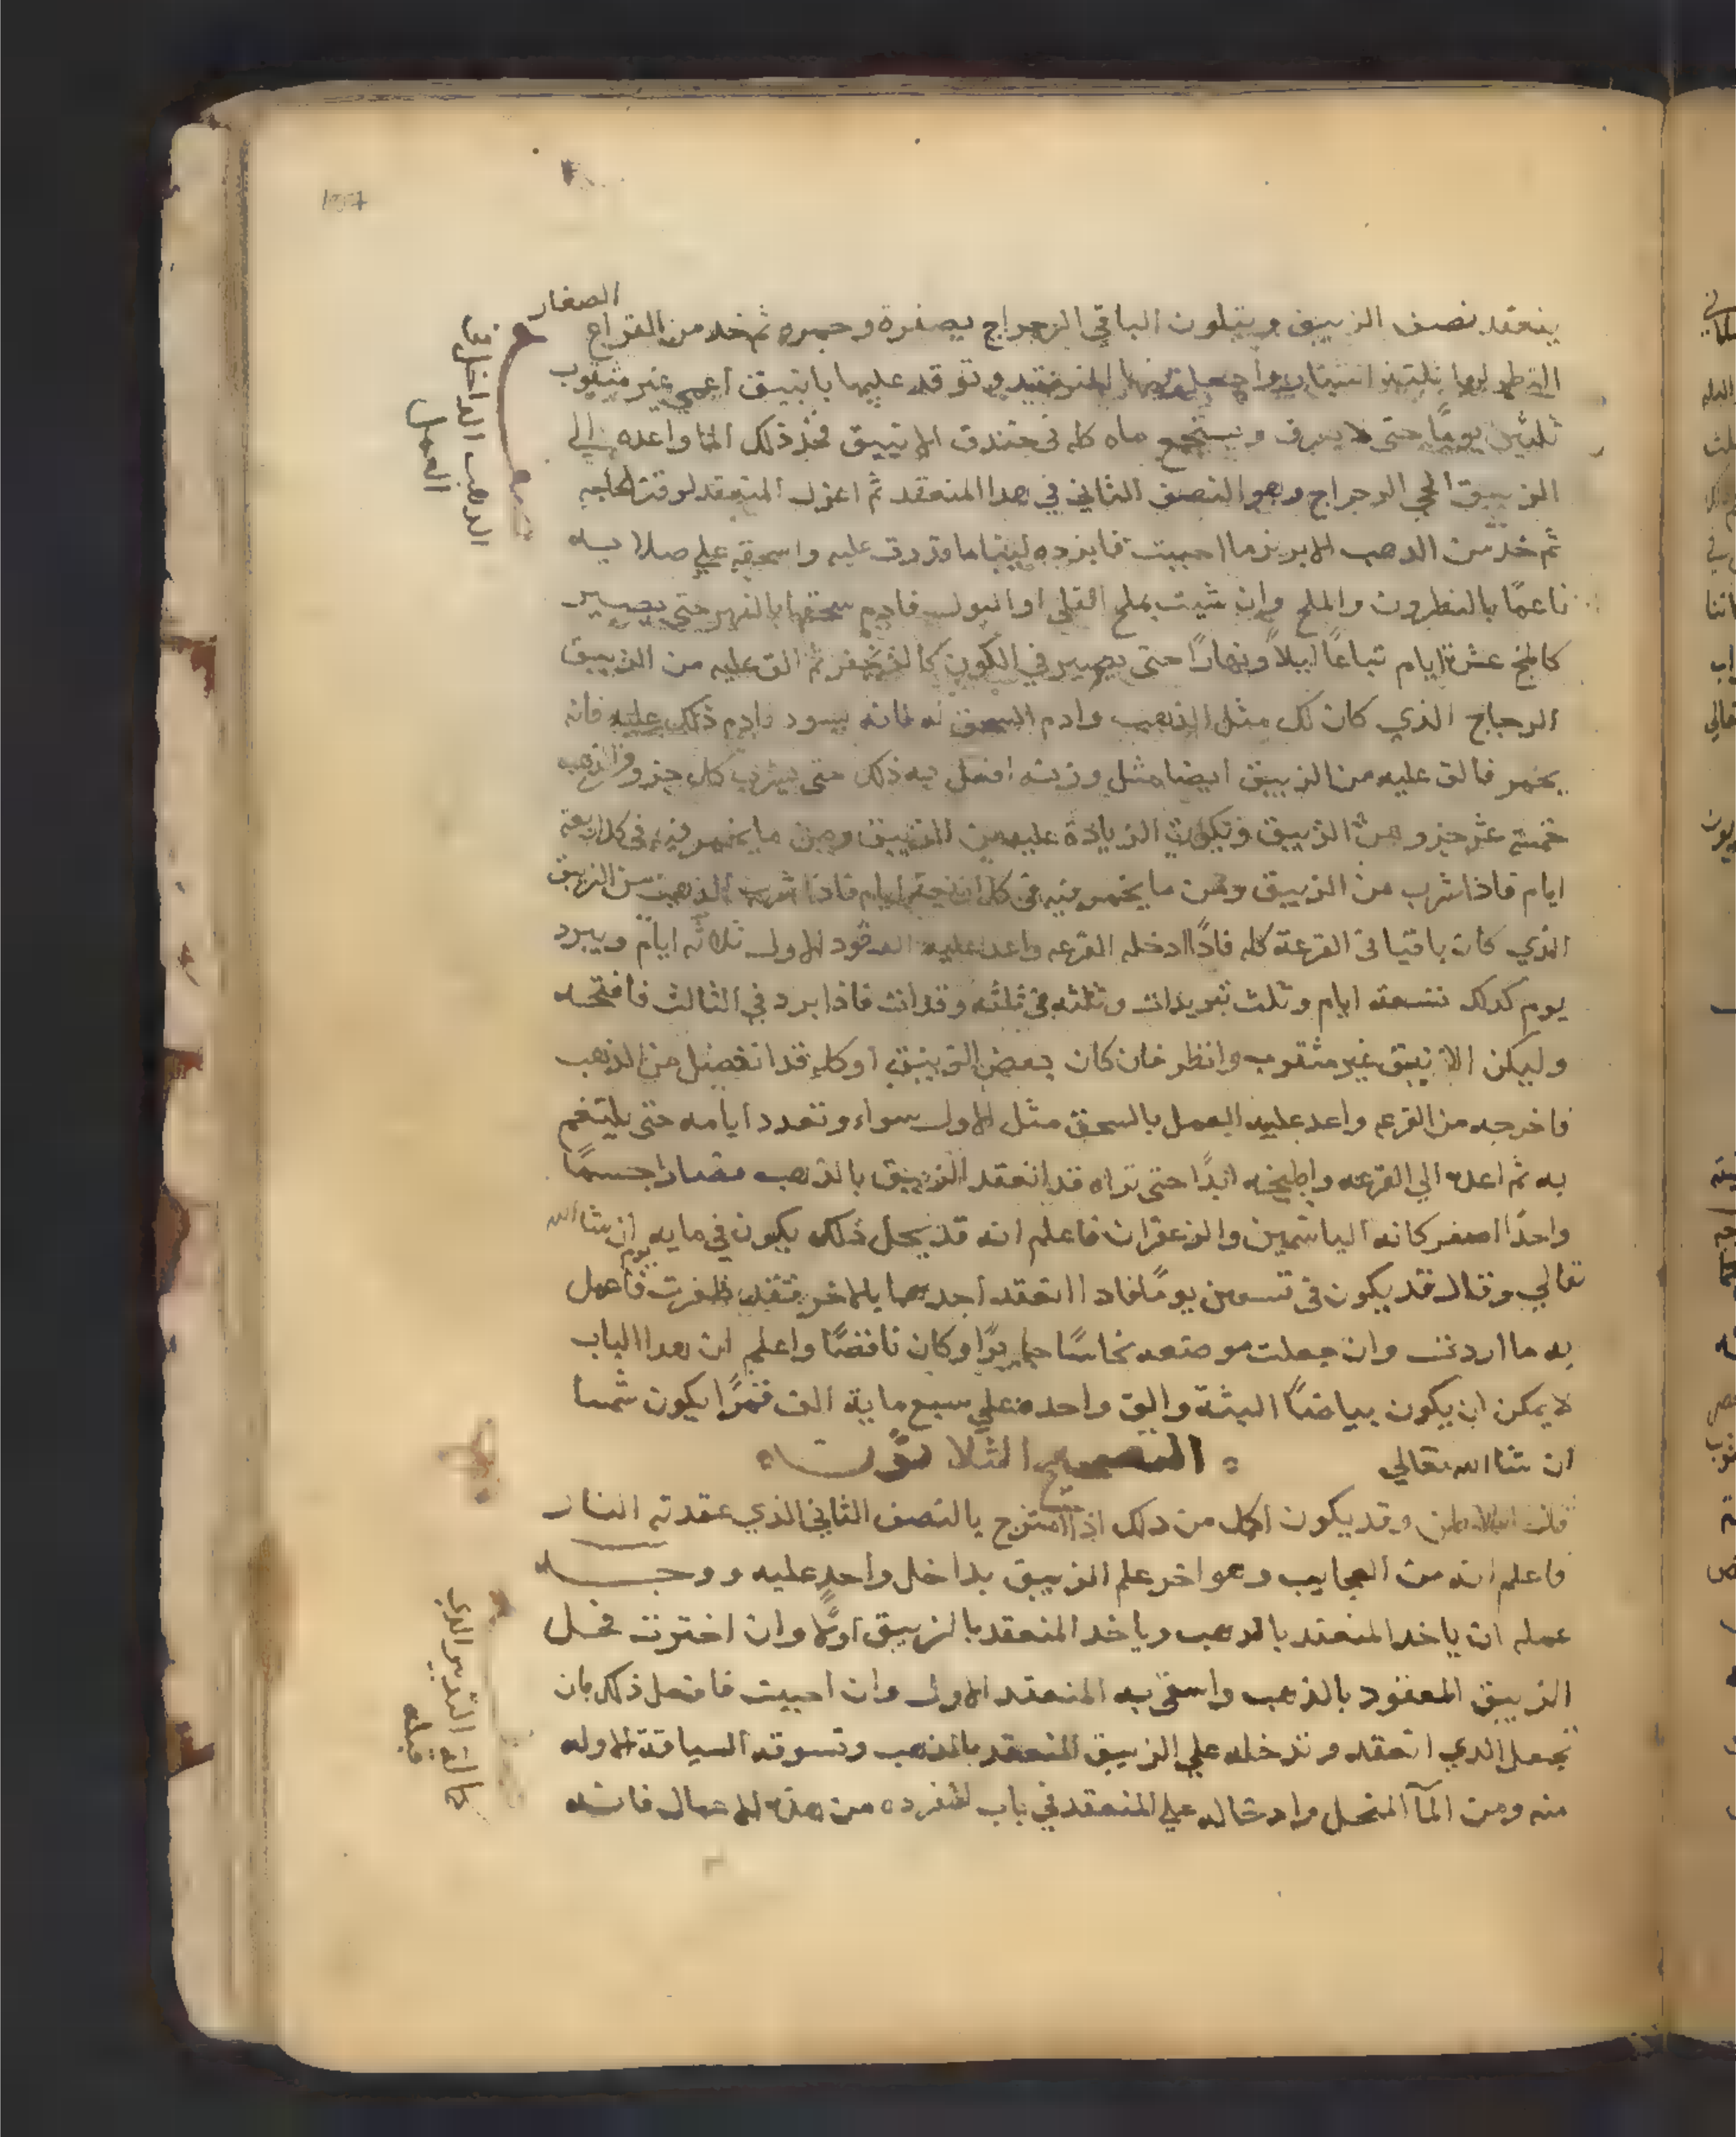 الصغار
ينعقد نصف الزيبق ويتلون الباقي الرجراج بصفرة وحمره ثم خد من القراع
واجعل فيها المنعقد وتوقد عليها بانبيق اعمي غير مثقوب
ثلثين يومًا حتى لا يعرف ويستجمع ماه كله في خندق الانبيق فخذ ذلك الما واعده الي
الزيبق الحي الرجراج وهو النصف الثاني في هدا المنعقد ثم اعزل المنعقد لوقت الحاجه
ثم خد من الدهب الابريز ما احببت فابرده لينا ما قدرت عليه واسحقه علي صلايه
ناعمًا بالنطرون والملح وان شيت بملح القلي او البول فادم سحقها بالفهر حتى يصير
كالمخ عشرة ايام تباعًا ليلاً ونهارًا حتى يصير في اللون كالزنجفر ثم الق عليه من الزيبق
الرجراج الذي كان لك مثل الذهب وادم السحق له فانه يسود وادم ذلك عليه فانه
يخمر فالق عليه من الزيبق ايضا مثل وزنه افعل به ذلك حتى يشرب كل جزو من الذهب
خمسة عشر جزو من الزيبق وتكون الزيادة عليه من الزيبق ومن ما يخمر فيه في كل اربعة
ايام فاذا شرب من الزيبق ومن ما يخمر فيه في كل اربعة ايام فاذا شرب الذهب من الزيبق
الذي كان باقيا في القرعة كله فاذًا ادخله القرعه واعد عليه الوقود الاول ثلاثه ايام ويبرد
يوم كدلك تسعة ايام وثلث تبريدات وثلثه في ثلثه وقدات فاذا برد في الثالث فافتحه
وليكن الانبيق غير مثقوب وانظر فان كان بعض الزيبق او كله قد انفصل من الذهب
فاخرجه من القرعه واعد عليه العمل بالسحق مثل الاول سواء وتعدد ايامه حتى يلتغم
به ثم اعده الي القرعه واطبخه ابدًا حتى تراه قد انعقد الزيبق بالذهب فصارا جسمًا
واحدًا اصفر كانه الياسمين والزعفران فاعلم انه قد يحل ذلك يكون في مايه يوم ان شا الله
تعالي وقال قد يكون في تسعين يومًا فاذا انعقد احدهما بالاخر فقد ظفرت فاعمل
به ما اردت وان جعلت موضعه نحاسًا او كان ناقصًا واعلم ان هدا الباب
لا يمكن ان يكون بياضًا البتة والق واحده علي سبع ماية الف قمرًا يكون شمسا
ان شا الله تعالي
التصحيح الثلاثون
وقد يكون اكمل من دلك اذا امتزج بالنصف الثاني الذي عقدته النار
فاعلم انه من العجايب وهو اخر علم الزيبق بداخل واحد عليه ووجه
عمله ان ياخد المنعقد بالدهب وياخد المنعقد بالزيبق اولاً وان اخترت فحل
الزيبق المعقود بالذهب واسق به المنعقد الاول وان احببت فافعل ذلك بان
تجعل الدي انعقد وتدخله علي الزيبق المنعقد بالذهب وتسوقه السياقة الاوله
منه ومن المآ المنحل وادخاله علي المنعقد في باب انفرده من هذه الاعمال فانه
الدهب الداخل في
العمل
التدبير الدي
قبله